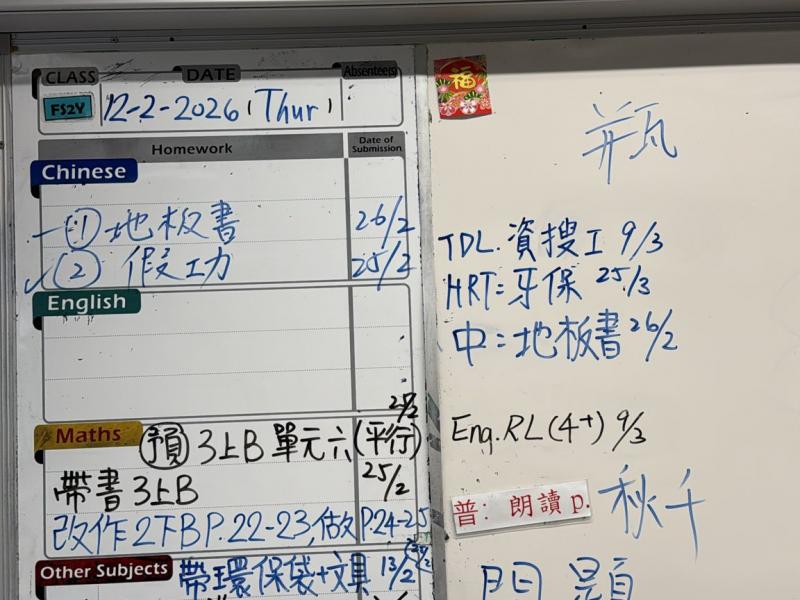 CLASS DATE Absentee(s)
FS2Y 12-2-2026 (Thur)
Homework Date of Submission
Chinese
① 地板書 26/2
② 假工力 25/2
English
Maths
預 3上B 單元六(平行) 25/2
帶書3上B 25/2
改作2下B P.22-23, 做 P.24-25
Other Subjects 帶環保袋+文具 13/2
福
瓶
TDL. 資搜工 9/3
HRT: 牙保 25/3
中: 地板書 26/2
Eng. RL (4+) 9/3
普: 朗讀 p.
秋千